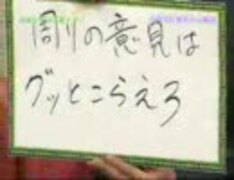 周りの意見は
グッとこらえろ